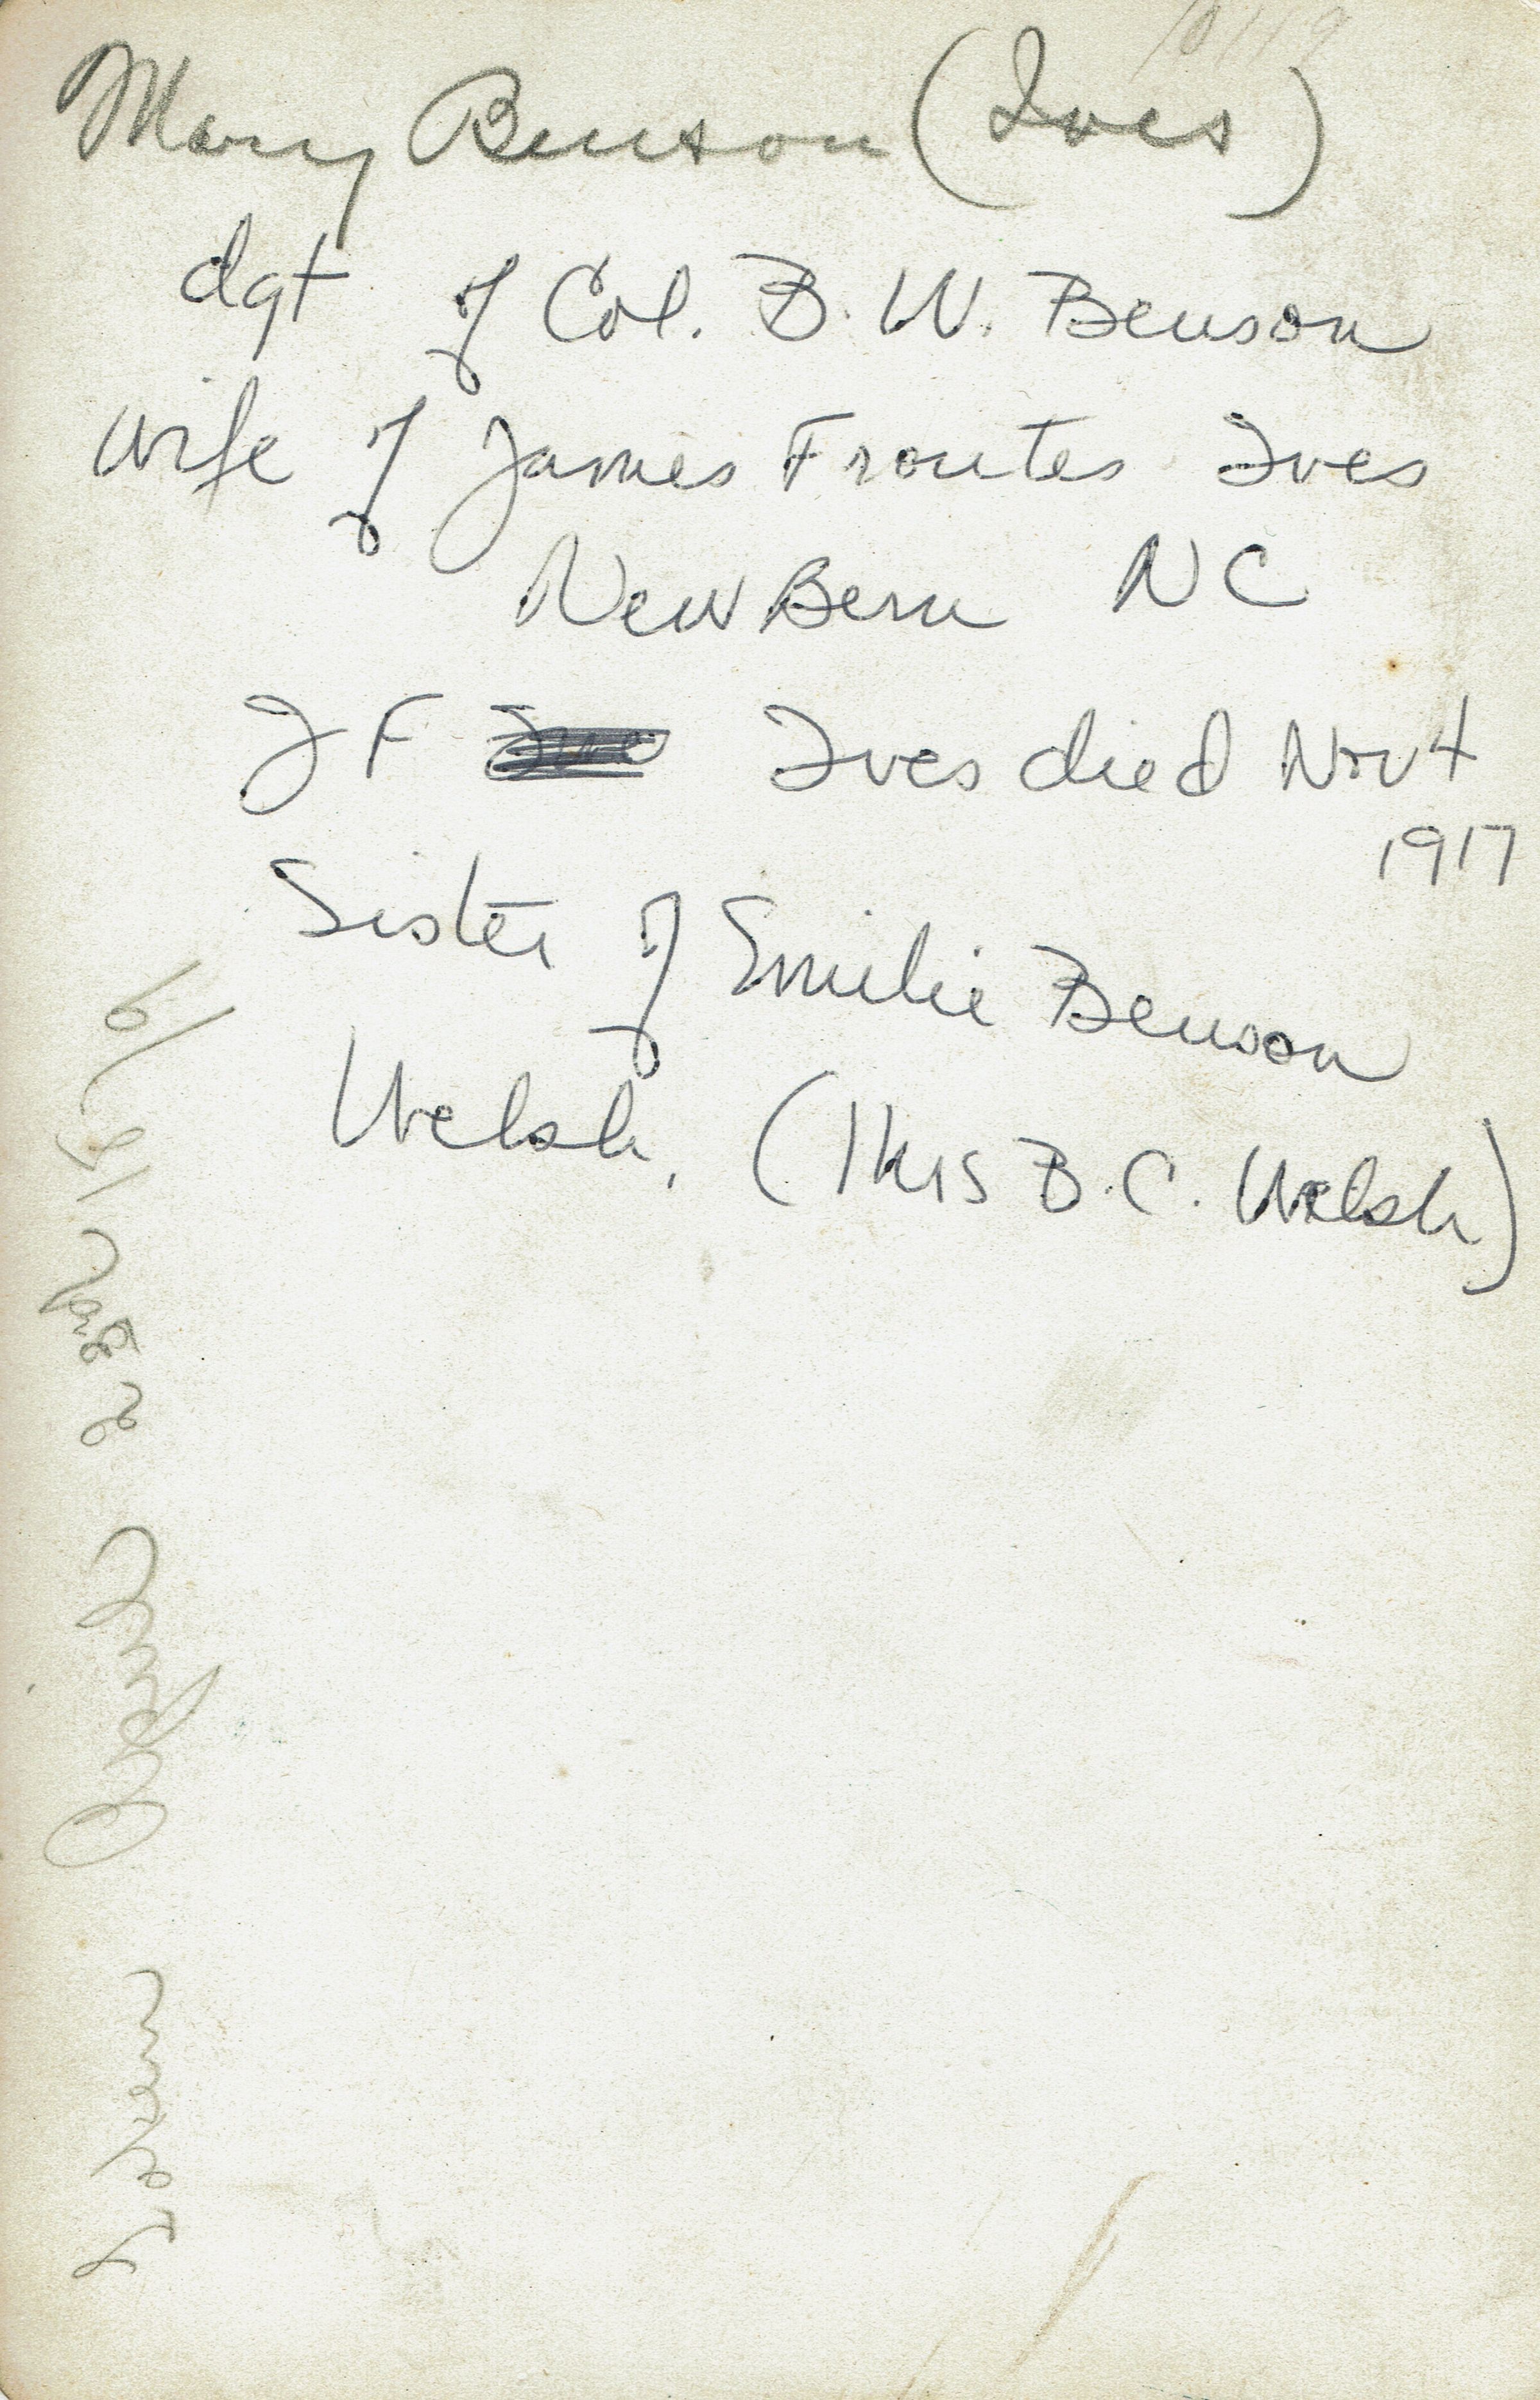 Mary Benson (Ives)
dgt of Col. B. W. Benson
wife of James Frontes Ives
New Bern NC
J F Ives died Nov 4
1917
Sister of Emilie Benson
Welsh, (Mrs B. C. Welsh)